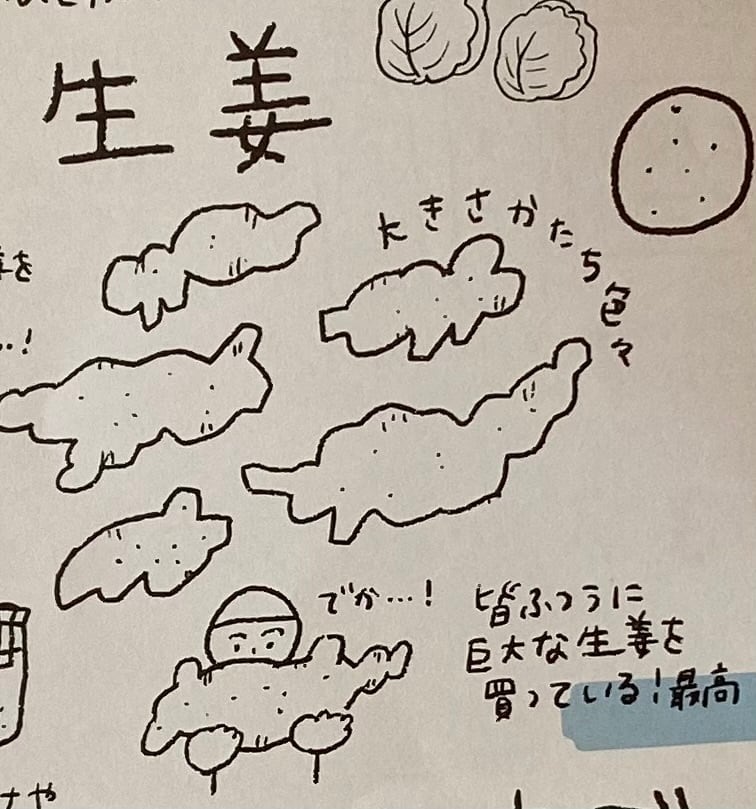 生姜
大きさかたち色々
を
…!
でか…!
皆ふつうに
巨大な生姜を
買っている!最高
や